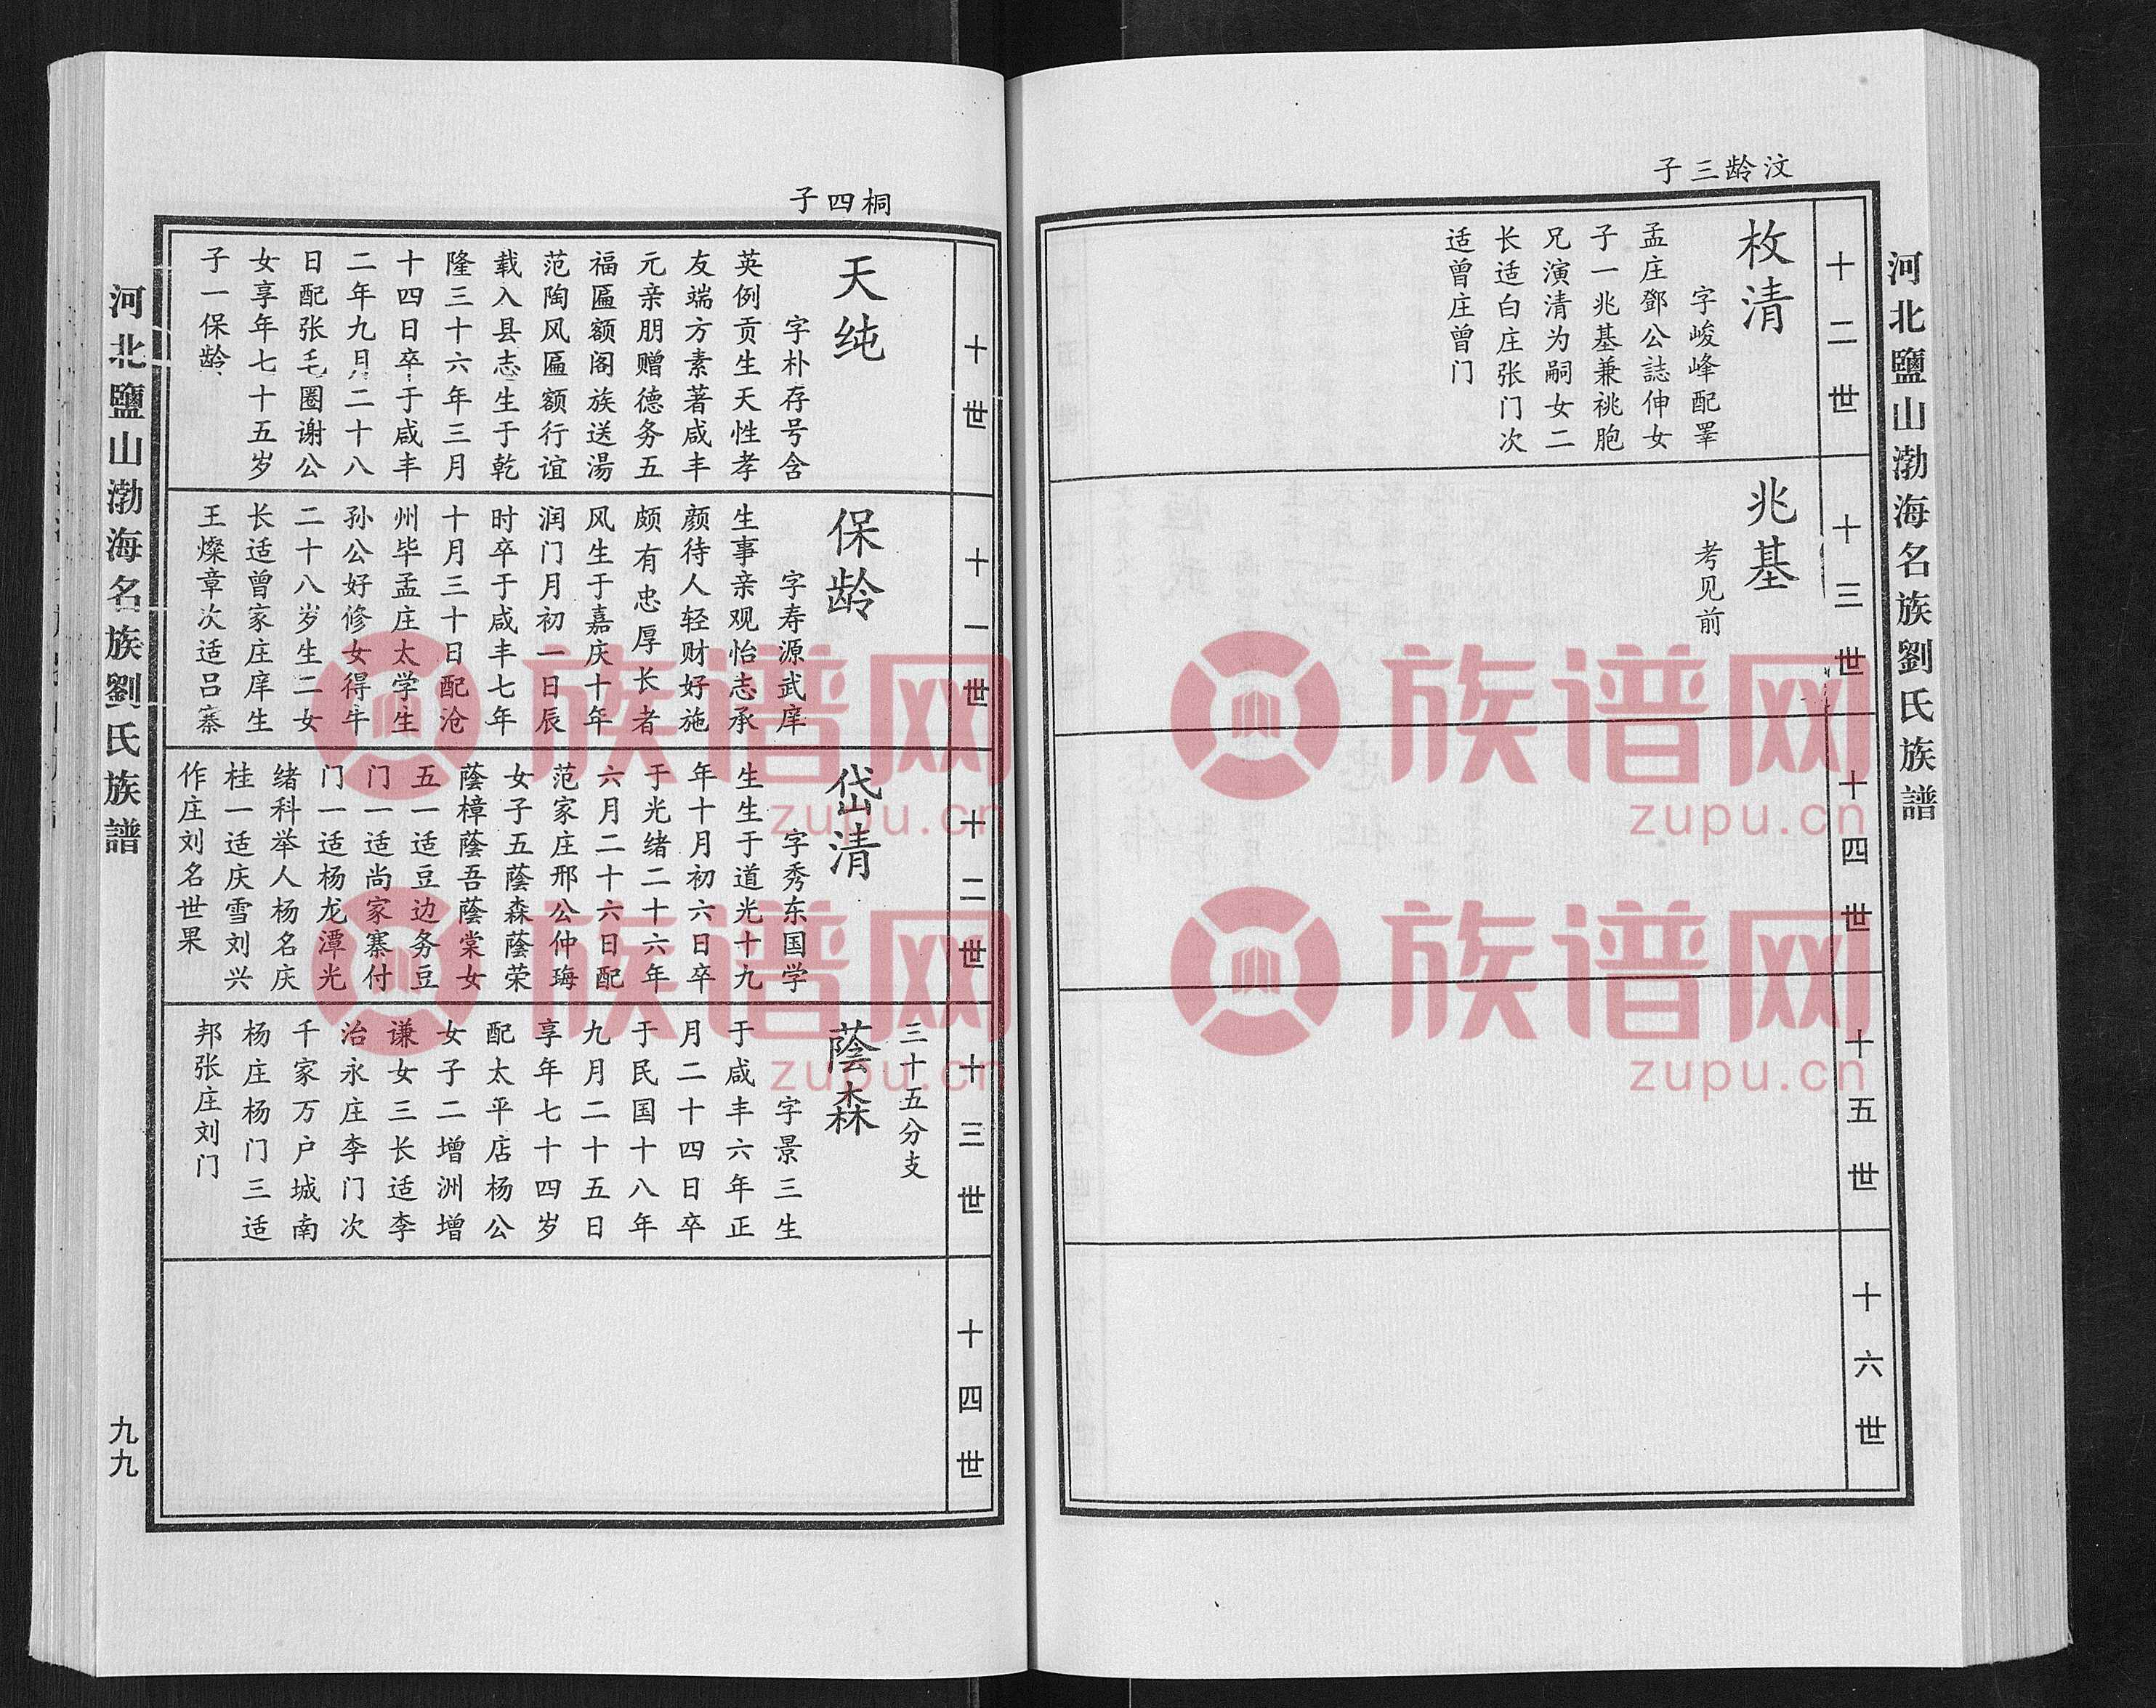 河北鹽山渤海名族劉氏族譜
汶龄三子
十二世
枚清
字峻峰配睪
孟庄鄧公誌伸女
子一兆基兼祧胞
兄演清为嗣女二
长适白庄张门次
适曾庄曾门
十三世
兆基
考见前
十四世
十五世
十六世
桐四子
十世
天纯
字朴存号含
英例贡生天性孝
友端方素著咸丰
元亲朋赠德务五
福匾额阁族送湯
范陶风匾额行谊
载入县志生于乾
隆三十六年三月
十四日卒于咸丰
二年九月二十八
日配张毛圈谢公
女享年七十五岁
子一保龄
十一世
保龄
字寿源武庠
生事亲观怡志承
颜待人轻财好施
颇有忠厚长者
风生于嘉庆十年
润门月初一日辰
时卒于咸丰七年
十月三十日配沧
州毕孟庄太学生
孙公好修女得年
二十八岁生二女
长适曾家庄庠生
王燦章次适吕寨
十二世
岱清
字秀东国学
生生于道光十九
年十月初六日卒
于光绪二十六年
六月二十六日配
范家庄邢公仲珻
女子五蔭森蔭荣
蔭樟蔭吾蔭棠女
五一适豆边务豆
门一适尚家寨付
门一适杨龙潭光
绪科举人杨名庆
桂一适庆雪刘兴
作庄刘名世果
十三世
三十五分支
蔭森
字景三生
于咸丰六年正
月二十四日卒
于民国十八年
九月二十五日
享年七十四岁
配太平店杨公
女子二增洲增
谦女三长适李
治永庄李门次
千家万户城南
杨庄杨门三适
邦张庄刘门
十四世
河北鹽山渤海名族劉氏族譜
九九
族谱网
zupu.cn
族谱网
zupu.cn
族谱网
zupu.cn
族谱网
zupu.cn